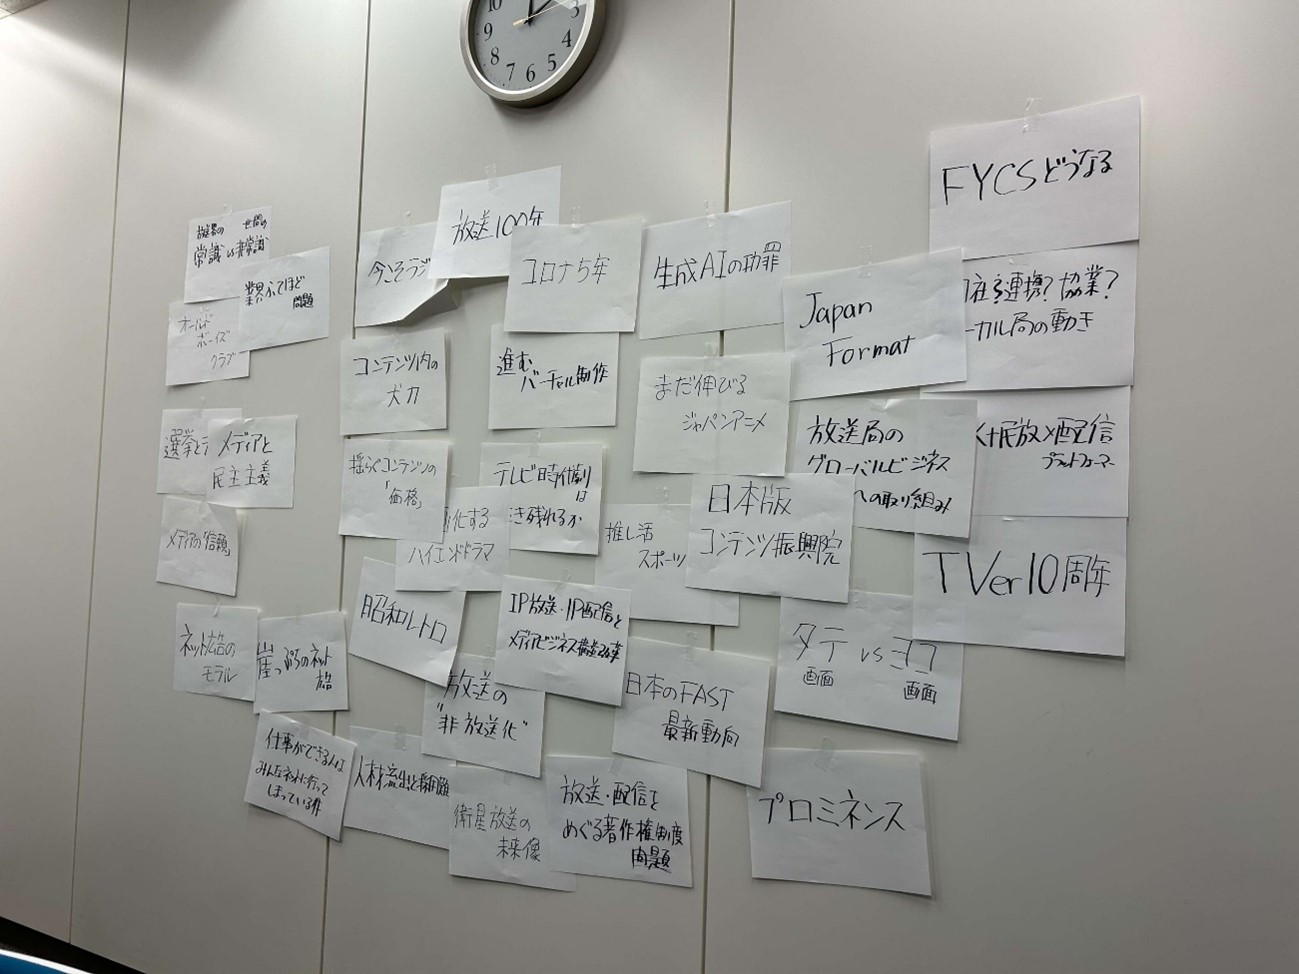 10
9
8
7
6
5
4
3
FYCSどうなる
放送100年
今こそラジ
コロナ5年
生成AIの功罪
世間の
常識 vs 非常識
問題
オールド
ボーイズ
クラブ
Japan
Format
連携?協業?
カル局の動き
コンテンツ内の
犬力
進む
バーチャル制作
まだ伸びる
ジャパンアニメ
放送局の
グローバルビジネス
への取り組み
民放×配信
プラットフォーマー
選挙と
メディアと
民主主義
揺らぐコンテンツの
「価格」
テレビ時代劇
は
き残れるか
化する
ハイエンドドラマ
推し活
スポーツ
日本版
コンテンツ振興院
メディアの「信頼」
TVer10周年
昭和レトロ
IP放送・IP配信と
メディアビジネス構造改革
タテ vs ヨコ
画面 画面
ネット広告の
モラル
崖っぷちのネット
放送の
"非放送化"
日本のFAST
最新動向
仕事ができる人は
みんなネットに行って
しまっている件
人材流出と
衛星放送の
未来像
放送・配信を
めぐる著作権制度
問題
プロミネンス